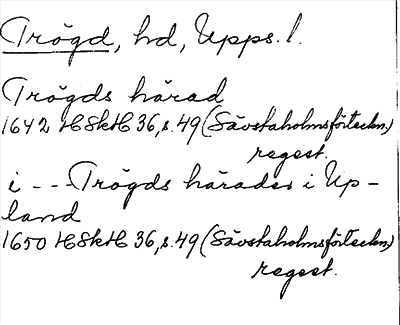 Trögd, hd, Upps. l.
Trögds härad
1642 HSkH 36, s. 49 (Sävstaholmsförteckn.)
regest.
i - - - Trögds härades i Up-
land
1650 HSkH 36, s. 49 (Sävstaholmsförteckn.)
regest.